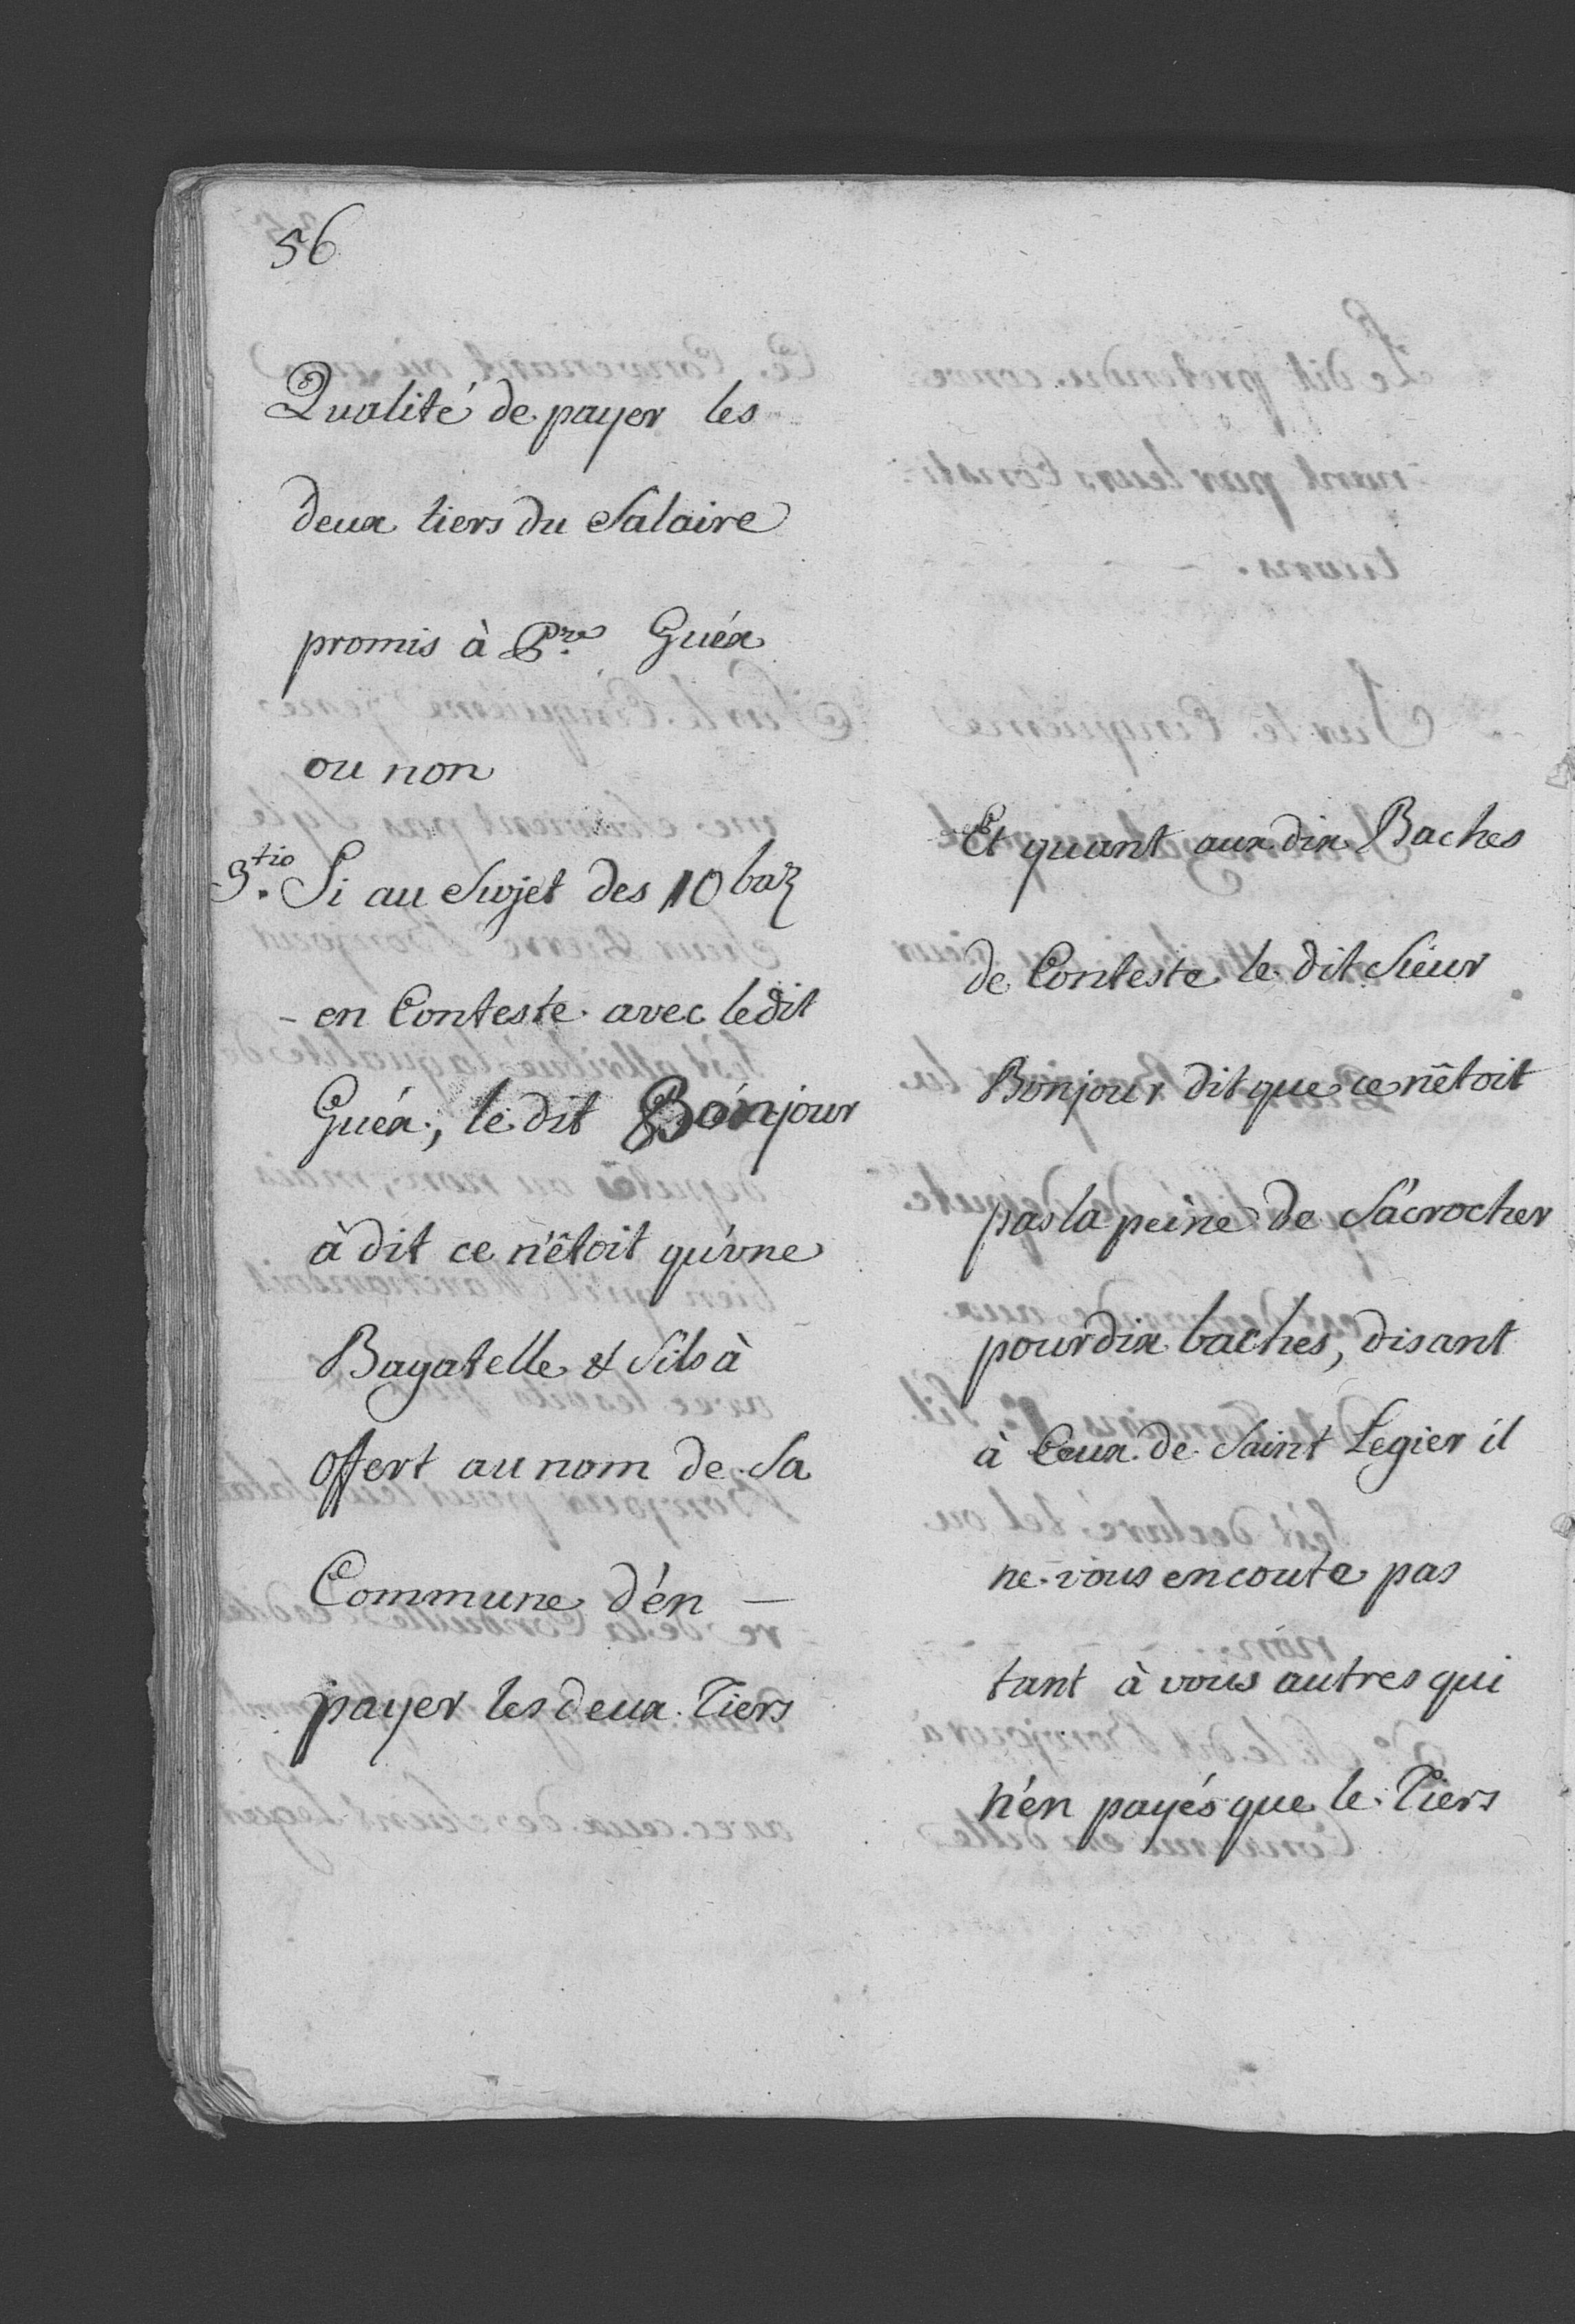 56
Qualité de payer les
deux tiers du Salaire
promis à Pre Guéx
ou non
3.tio Si au Sujet des 10 baz
- en Conteste avec ledit
Guéx, le dit Bonjour
à dit ce n'êtoit qu'une
Bagatelle & S'ils à
offert au nom de Sa
Commune d'én -
payer les deux Tiers
Et quant aux dix Baches
de Conteste le dit Sieur
Bonjour dit que ce n'êtoit
pas la peine de S'acrocher
pour dix baches, disant
à Ceux de Saint Legier il
ne vous en coute pas
tant à vous autres qui
n'én payés que le Tiers